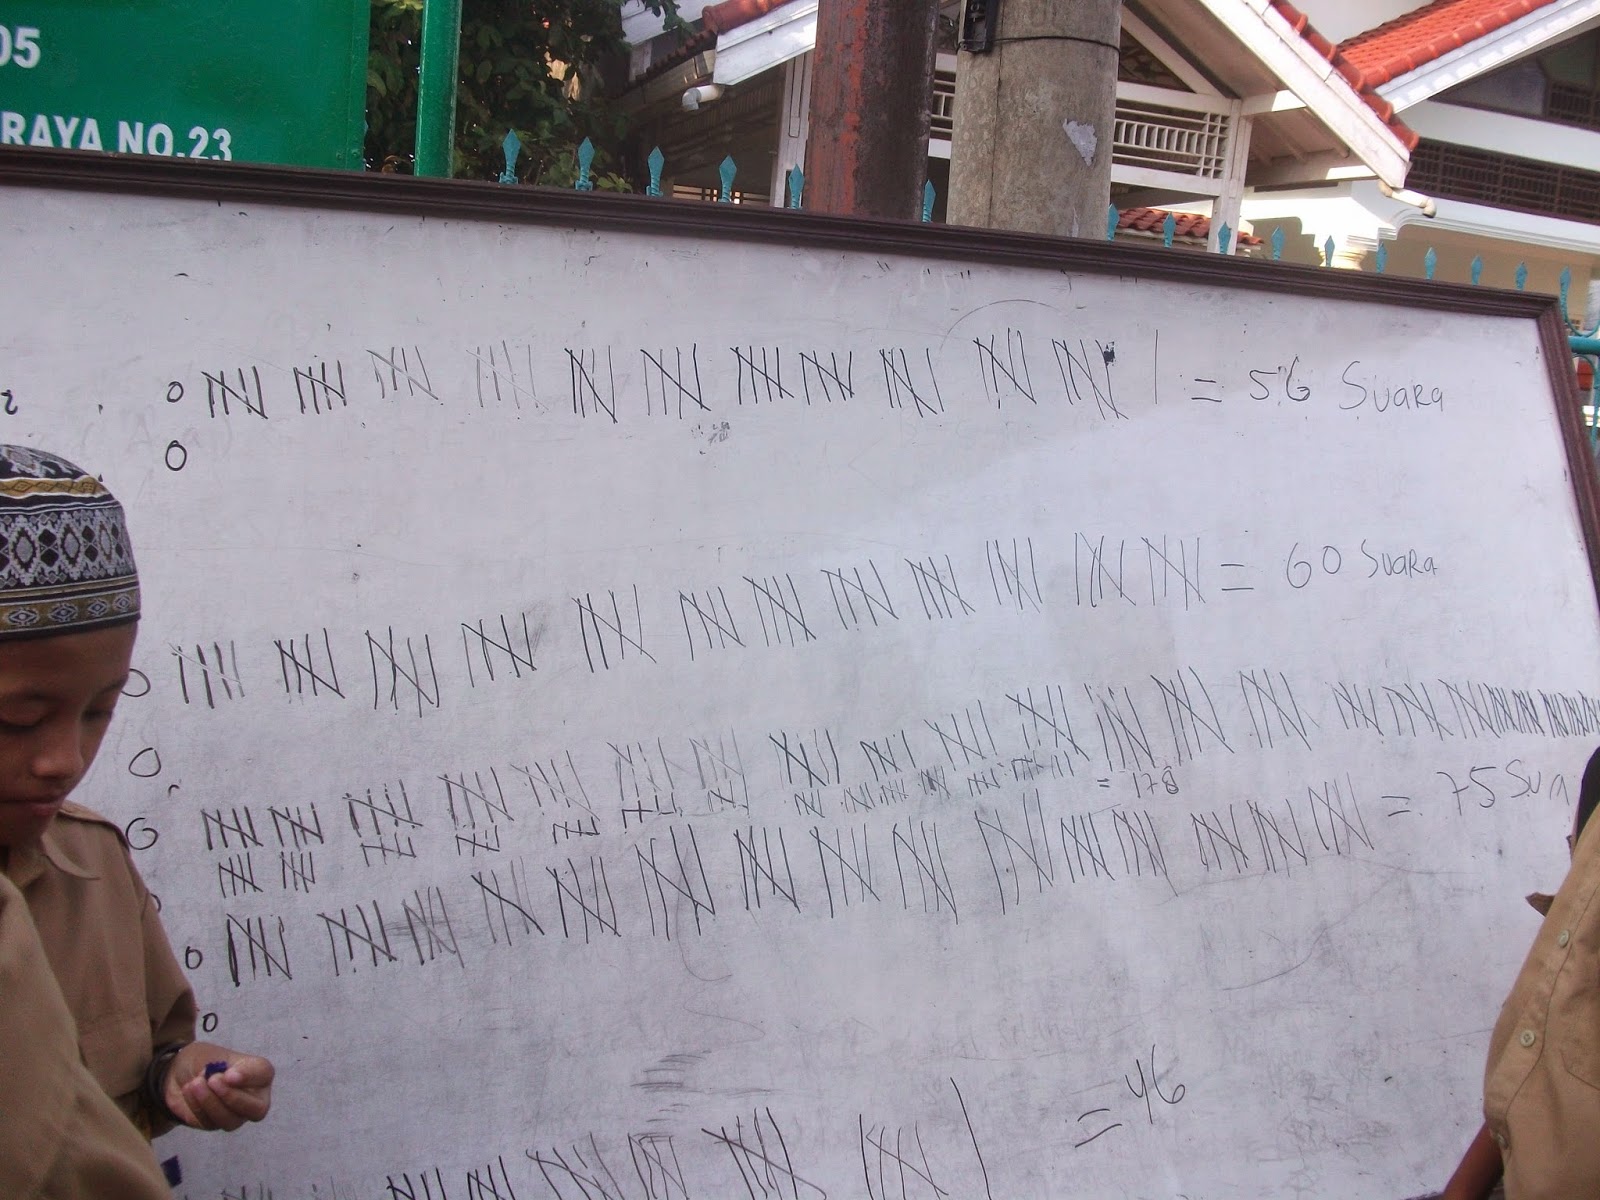 05
RAYA NO.23
= 56 Suara
= 60 Suara
= 178
= 75 Sua
= 46